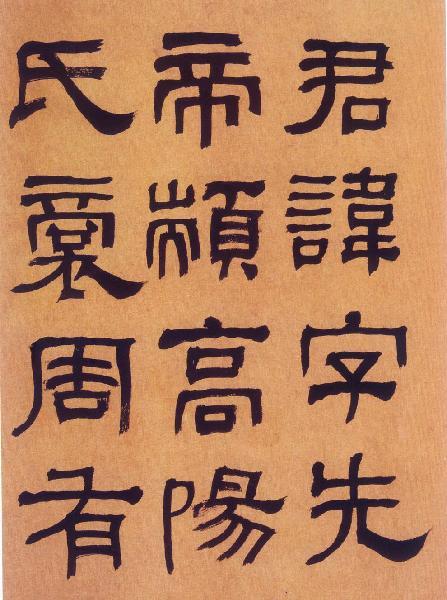 君諱字先
帝顓高陽
氏周有